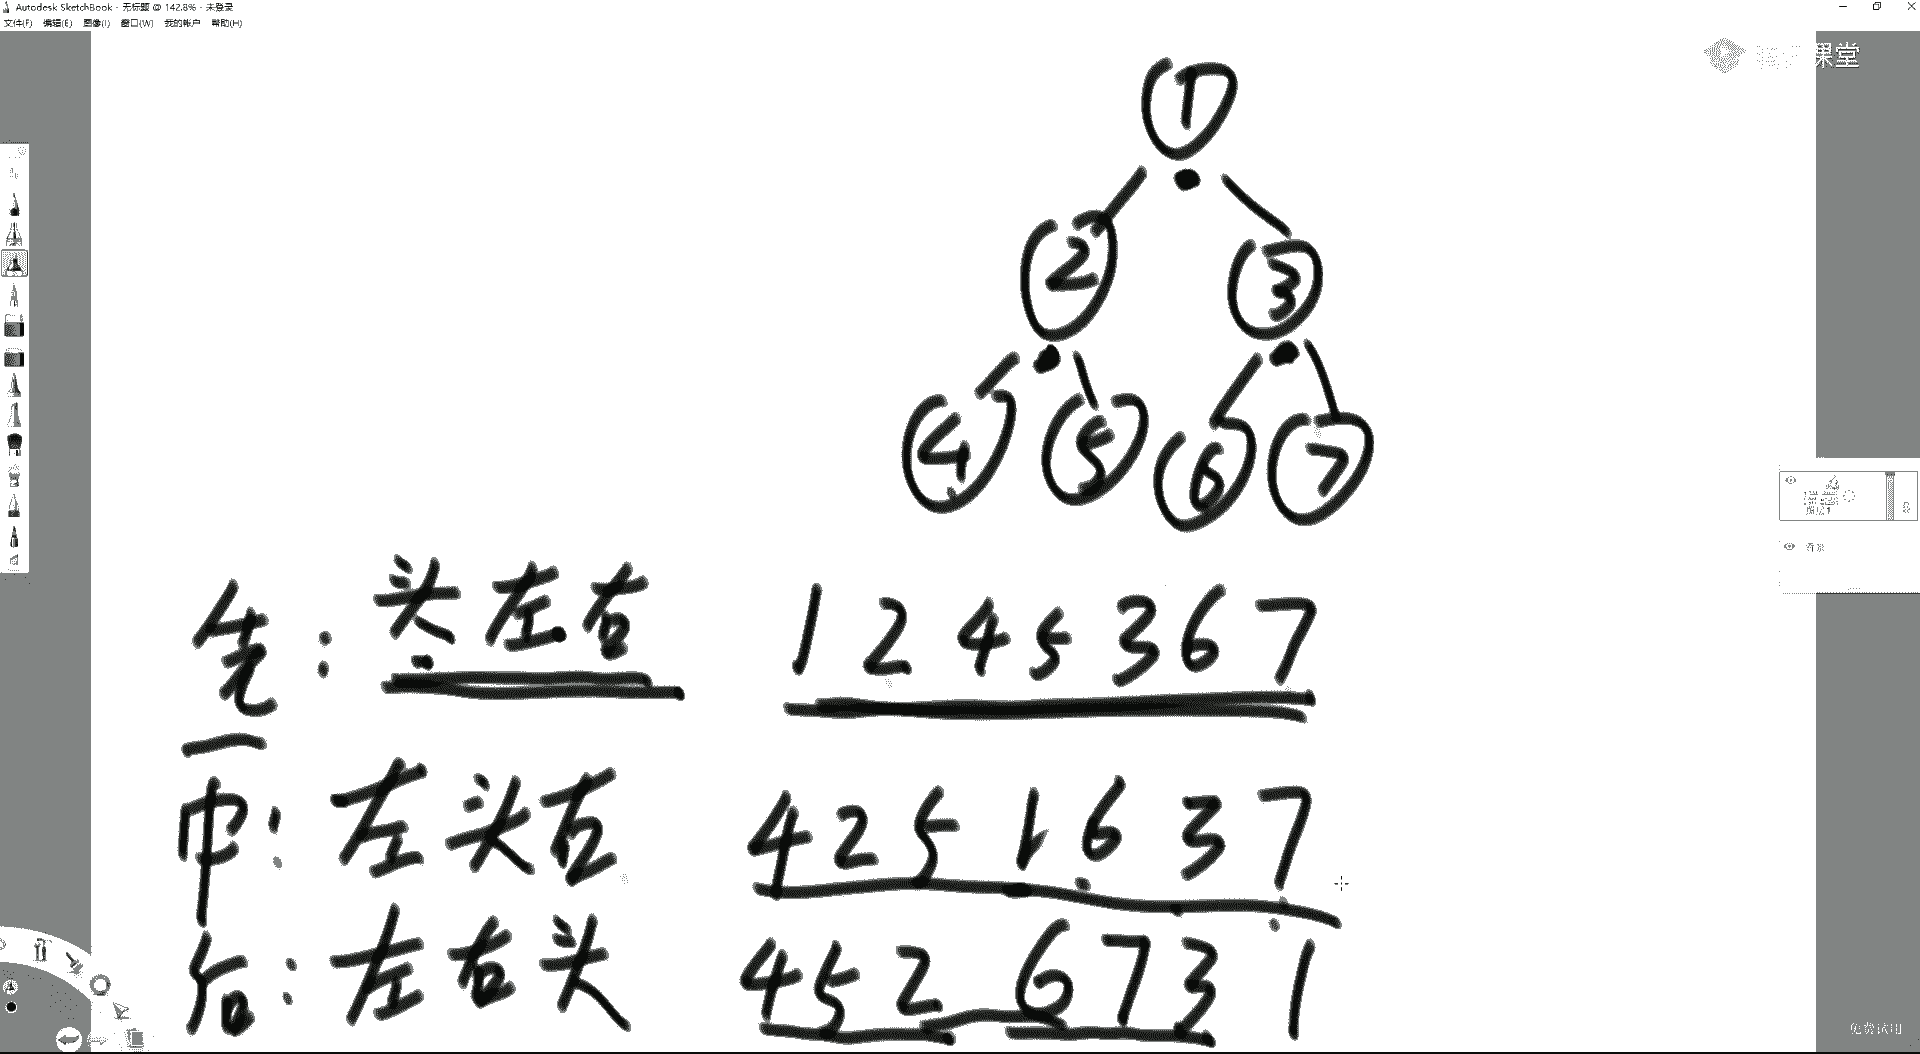 Autodesk SketchBook - 无标题 @ 142.8% - 未登录
文件(F) 编辑(E) 图像(I) 窗口(W) 我的帐户 帮助(H)
课堂
1
2 3
4 5 6 7
先: 头左右 1 2 4 5 3 6 7
中: 左头右 4 2 5 1 6 3 7
后: 左右头 4 5 2 6 7 3 1
背景
免费试用